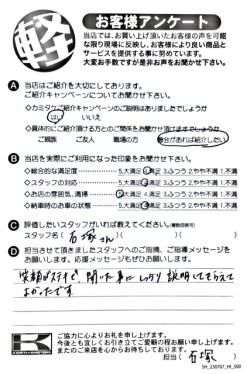 軽
お客様アンケート
当店では、お買い上げ頂いたお客様の声を可能
な限り現場に反映し、お客様により良い商品と
サービスを提供する事に努めています。
大変お手数ですが是非お声をお聞かせ下さい。
A 当店はご紹介を大切にしております。
ご紹介キャンペーンについてお聞かせ下さい。
◇カミタケご紹介キャンペーンのご説明はありましたでしょうか
はい いいえ
◇具体的にご紹介頂ける方とのご関係をお聞かせ頂けますでしょうか
ご親族 ご友人 職場の方 機会があれば紹介したい
B 当店を実際にご利用になった印象をお聞かせ下さい。
◇総合的な満足度 5.大満足 4.満足 3.ふつう 2.やや不満 1.不満
◇スタッフの対応 5.大満足 4.満足 3.ふつう 2.やや不満 1.不満
◇お店の雰囲気、清掃 5.大満足 4.満足 3.ふつう 2.やや不満 1.不満
◇納車時のお車の状態 5.大満足 4.満足 3.ふつう 2.やや不満 1.不満
C 評価したいスタッフがいれば教えてください。(複数回答可)
スタッフ名( 石塚さん )( )( )
D 担当させて頂きましたスタッフへのご指摘、ご指導メッセージを
お願いします。応援メッセージもぜひお聞かせ下さい。
笑顔がステキで、聞いた事にしっかり説明してもらえて
よかったです
K
ご協力に心よりお礼を申し上げます。
今後とも宜しくお引き立てご愛顧の程お願い申し上げます。
またのご来店を心からお待ちしております。
担当( 石塚 )
SH_230707_HI_500